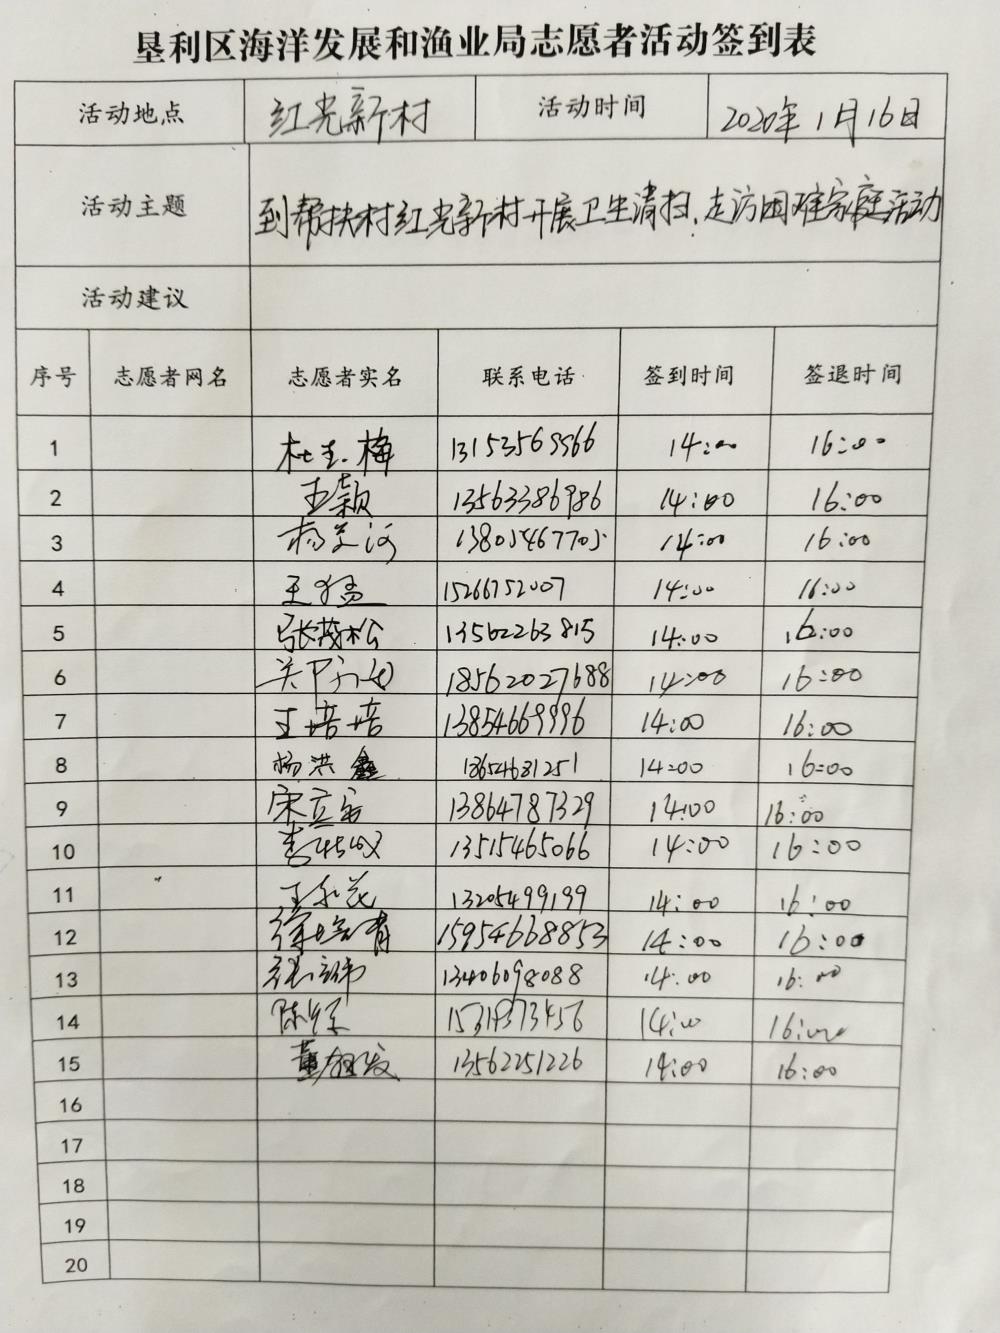 垦利区海洋发展和渔业局志愿者活动签到表
活动地点 红光新村 活动时间 2020年1月16日
活动主题 到帮扶村红光新村开展卫生清扫、走访困难家庭活动
活动建议
序号 志愿者网名 志愿者实名 联系电话 签到时间 签退时间
1 杜玉梅 13153569566 14:00 16:00
2 王颖 13563386986 14:00 16:00
3 14:00 16:00
4 王猛 15266752007 14:00 16:00
5 张茂松 13562263815 14:00 16:00
6 18562027688 14:00 16:00
7 王培培 13854669996 14:00 16:00
8 杨洪鑫 18654681251 14:00 16:00
9 13864787329 14:00 16:00
10 13515465066 14:00 16:00
11 13205499199 14:00 16:00
12 徐培育 15954668853 14:00 16:00
13 13406098088 14:00 16:00
14 14:00 16:00
15 13562251226 14:00 16:00
16
17
18
19
20